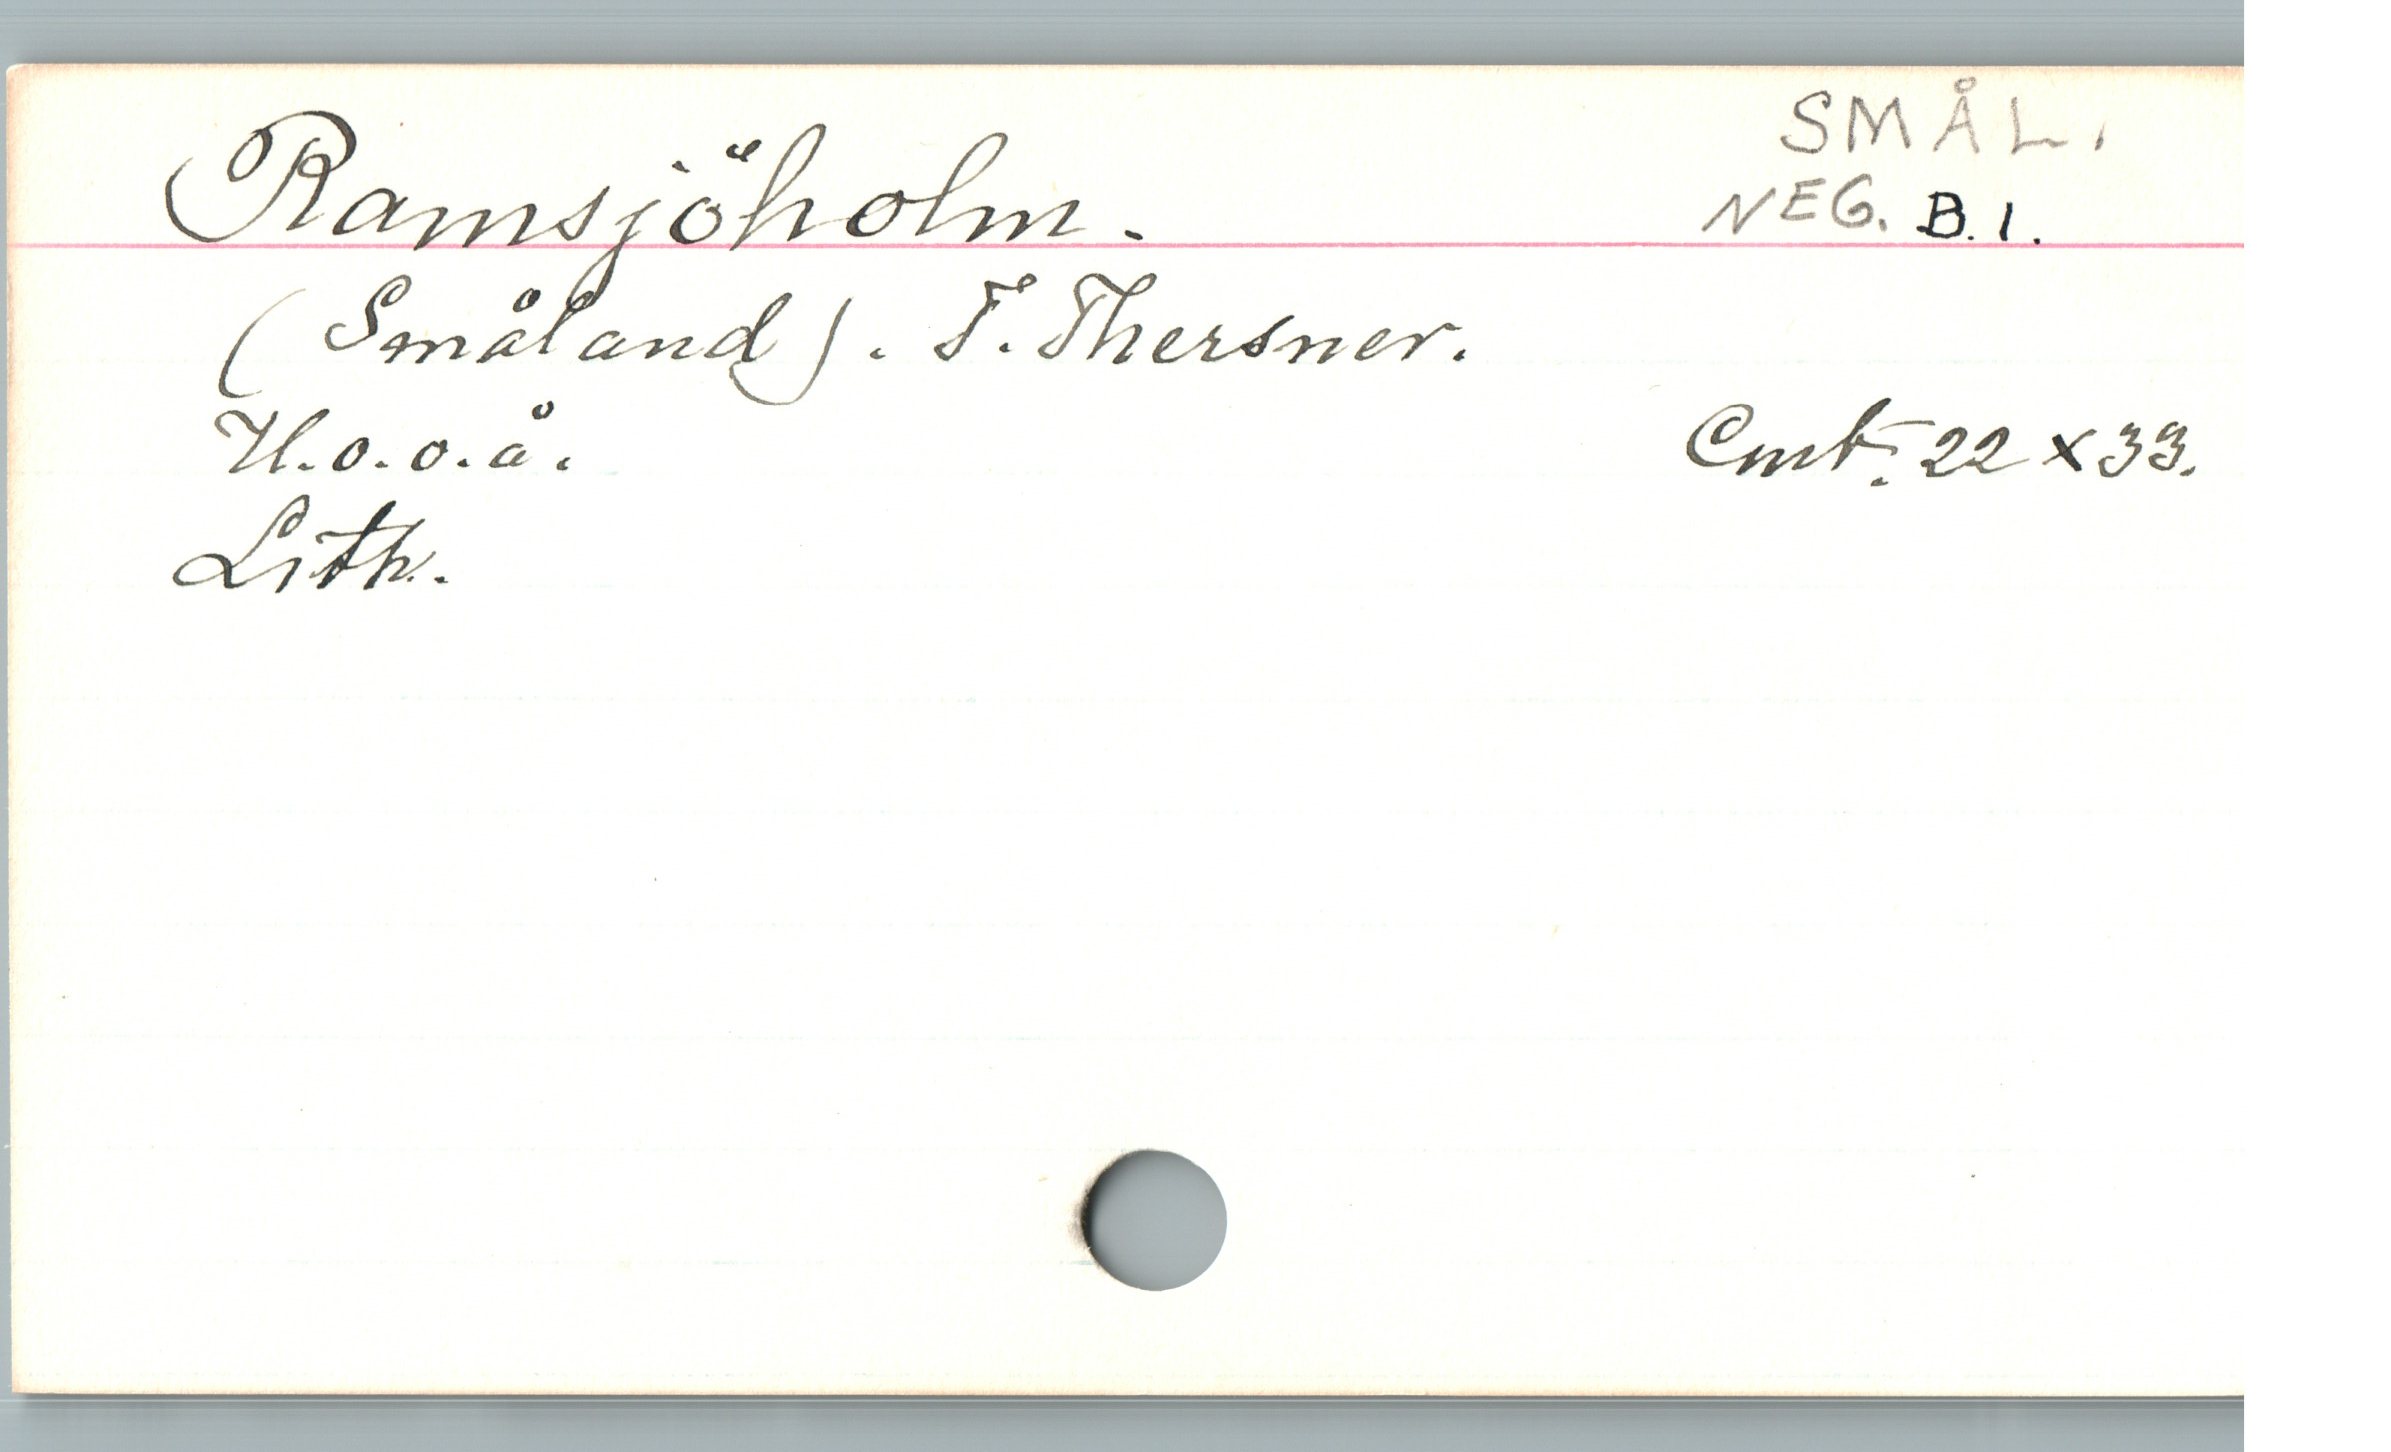 SMÅL.
Ramsjöholm.
NEG. B.1.
(Småland). F. Thersner.
U.o.o.å.
Cmt. 22 x 33.
Lith.